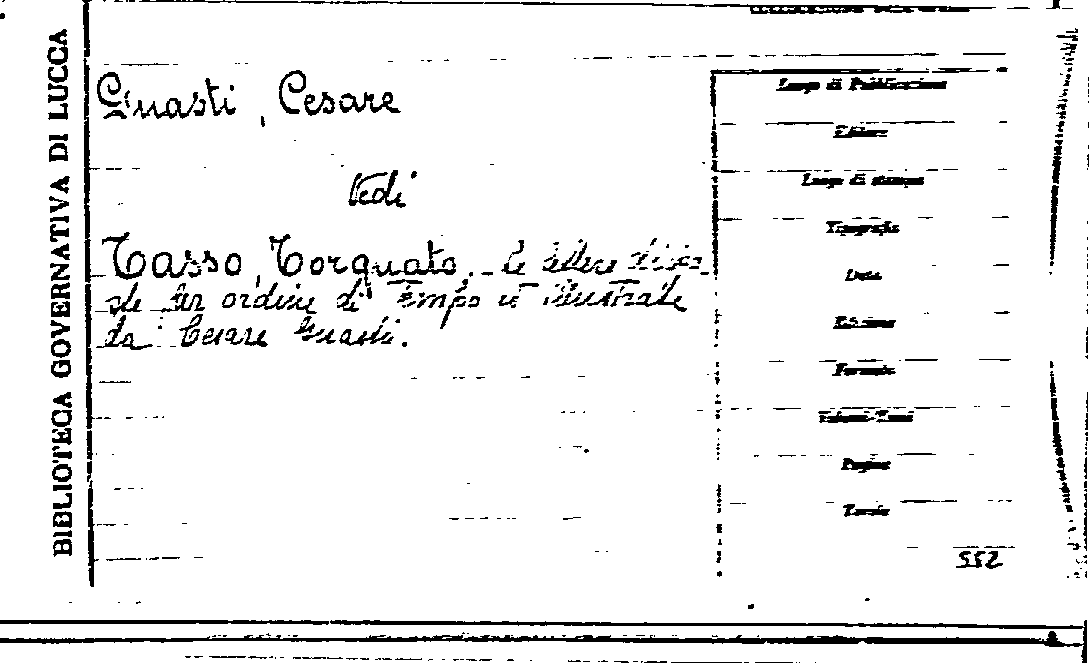 BIBLIOTECA GOVERNATIVA DI LUCCA
Guasti, Cesare
Vedi
Tasso, Torquato. Le lettere dispo-
ste per ordine di tempo ed illustrate
da Cesare Guasti.
Luogo di Pubblicazione
Editore
Luogo di stampa
Tipografia
Data
Edizione
Formato
Volumi-Tomi
Pagine
Tavole
552